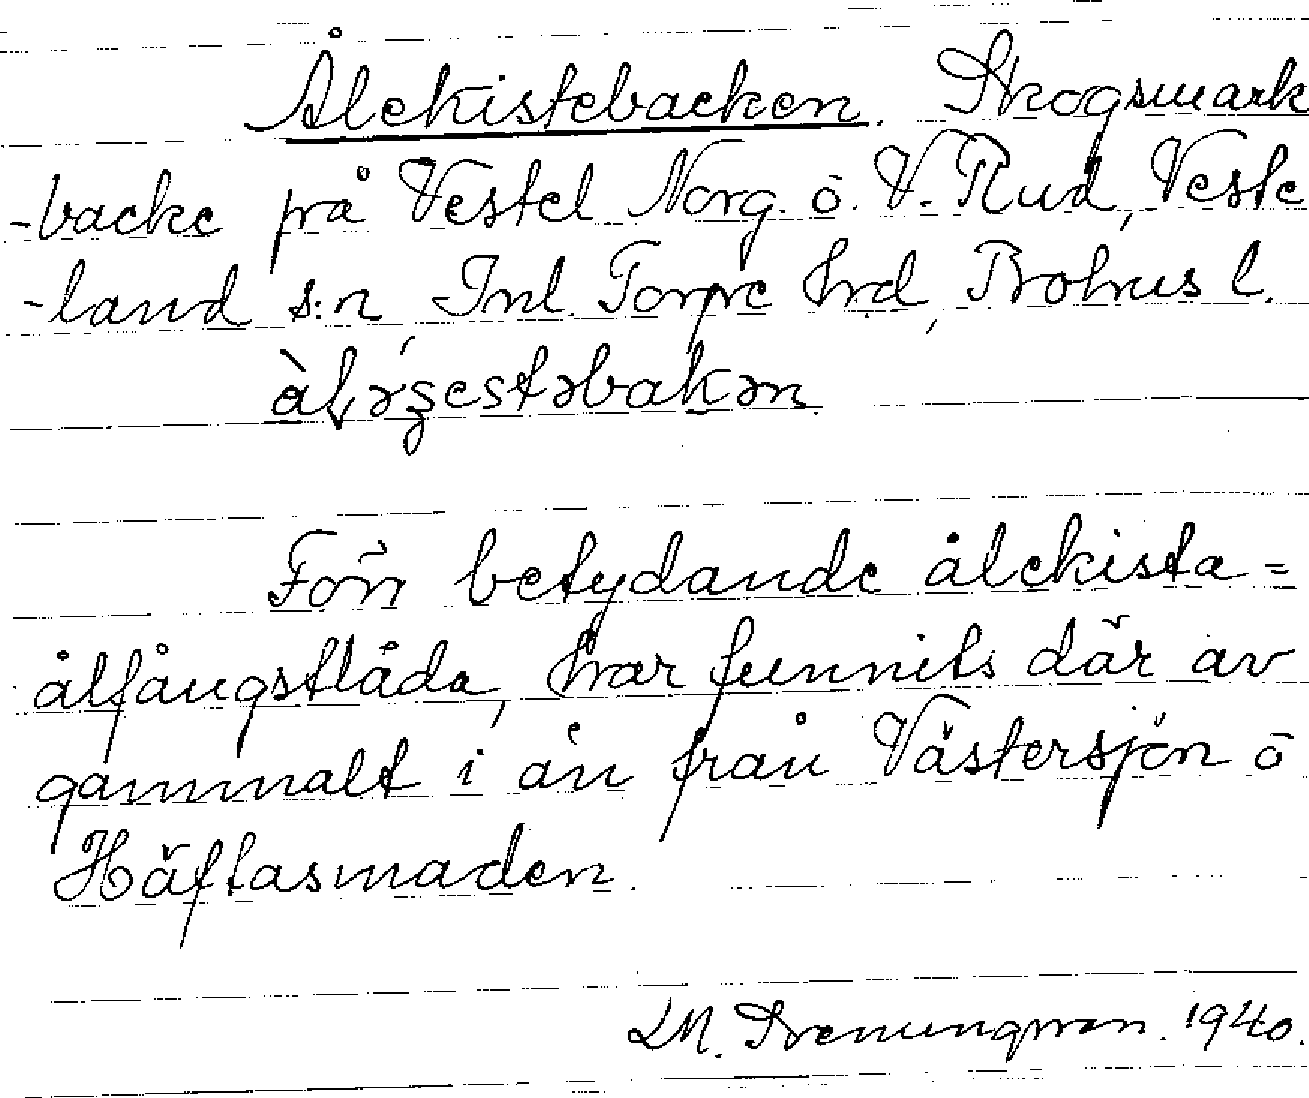 Ålekistebacken. Skogsmark
-backe på Vestel Norg. o. V. Rud, Veste
-land s:n, Inl. Torpe hrd, Bohus l.
àlɘçestəbakən

Förr betydande ålekista =
ålfångstlåda, har funnits där av
gammalt i ån från Västersjön o
Häftasmaden.

1940.